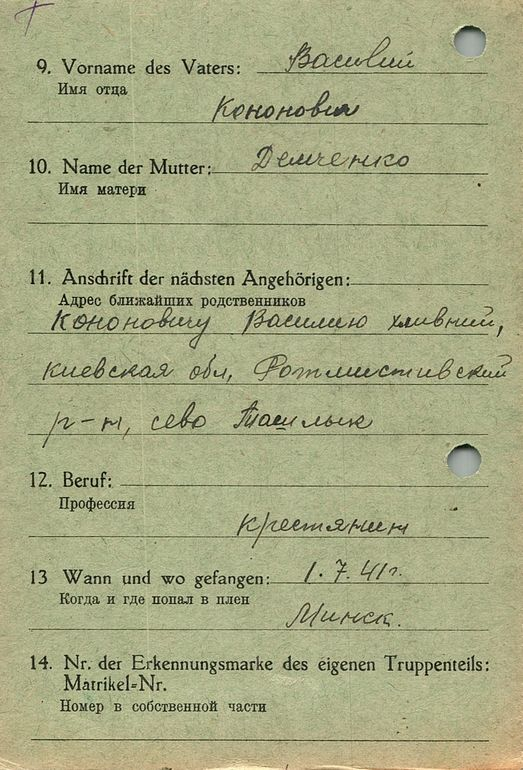 9. Vorname des Vaters: Василий
Имя отца
Кононович
10. Name der Mutter: Демченко
Имя матери
11. Anschrift der nächsten Angehörigen:
Адрес ближайших родственников
Кононовичу Василию
киевская обл, Ротмистивский
р-н, сево Ташлык
12. Beruf:
Профессия
крестянин
13 Wann und wo gefangen: 1. 7. 41г.
Когда и где попал в плен
Минск.
14. Nr. der Erkennungsmarke des eigenen Truppenteils:
Matrikel-Nr.
Номер в собственной части